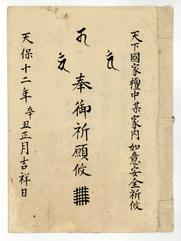 天下國家檀中某家内如意安全祈攸
奉御祈願攸
天保十二年辛丑正月吉祥日